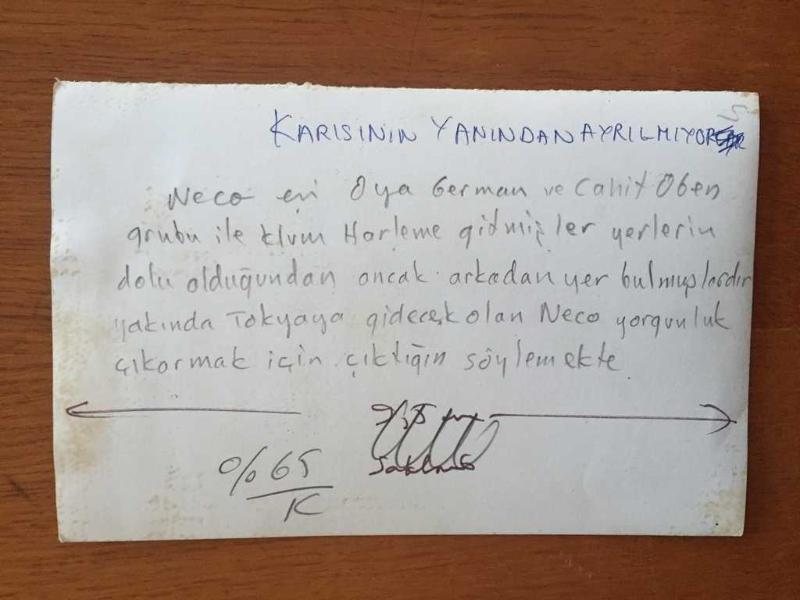 KARISININ YANINDAN AYRILMIYOR
Neco eşi Oya German ve Cahit Oben
grubu ile Harleme gidmişler yerlerin
dolu olduğundan ancak arkadan yer bulmuşlardır
yakında Tokyaya gidecek olan Neco yorgunluk
çıkarmak için çıktığın söylemekte
%65
K